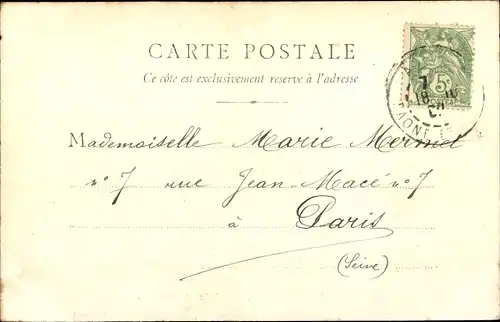 CARTE POSTALE
Ce côté est exclusivement reservé à l'adresse
5c
Mademoiselle Marie Mermet
n° 7 rue Jean-Macé n° 7
à Paris
(Seine)